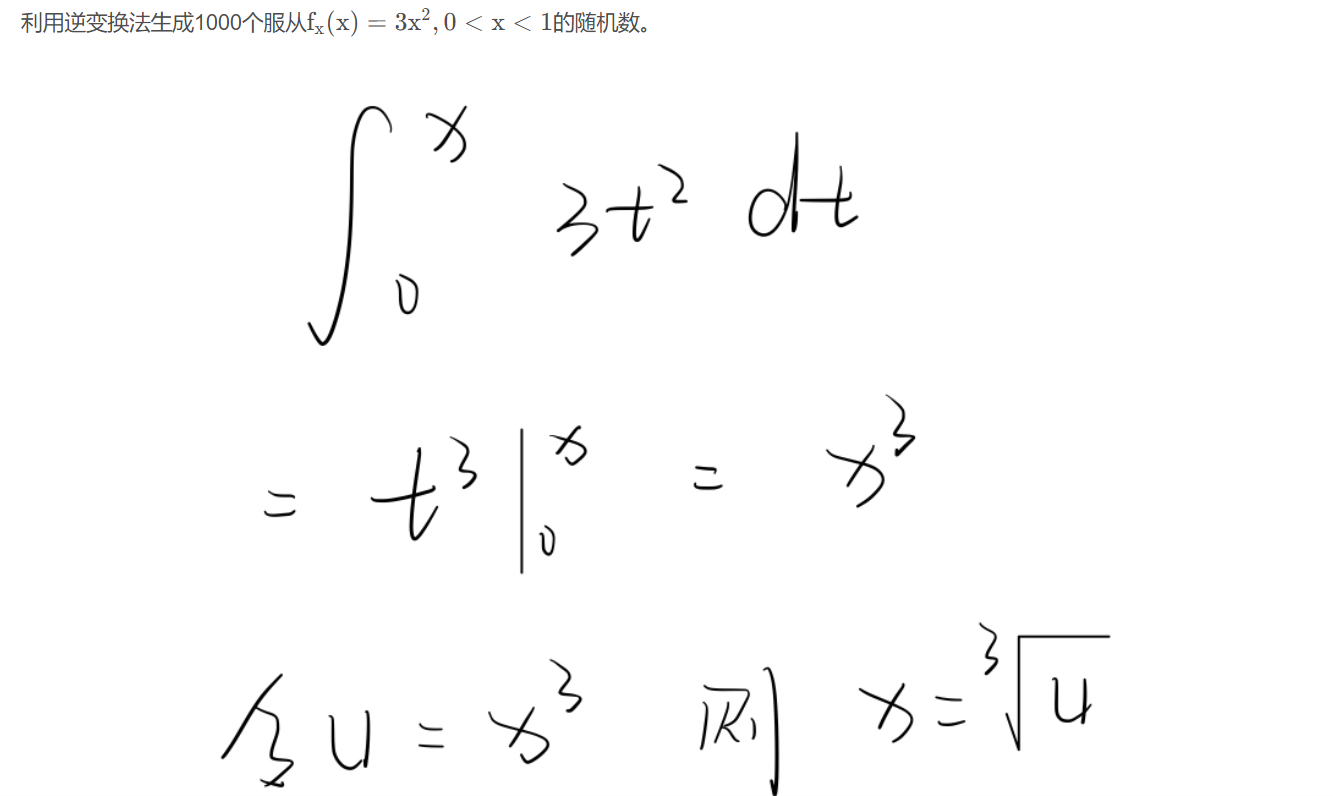 利用逆变换法生成1000个服从fₓ(x) = 3x², 0 < x < 1的随机数。
∫₀ˣ 3t² dt
= t³ |₀ˣ = x³
令 u = x³ 则 x = ³√u